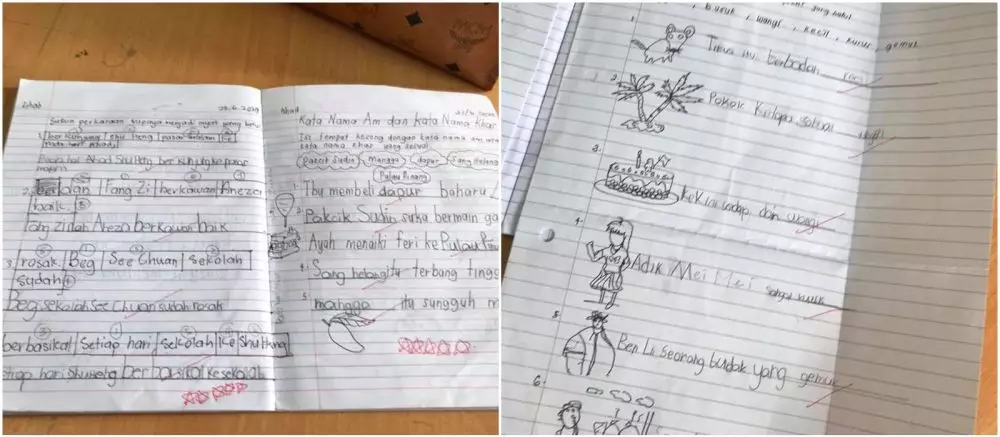 Ahad
Susun perkataan supaya menjadi ayat yang
1. berkunjung / Shu / Heng / pasar malam / ke
Pada hari Ahad
Pada hari Ahad Shu Heng berkunjung ke pasar
malam
2. berjalan / Fang Zi / berkawan / Aneza
baik
berkawan baik
3. rosak / Beg / See Chuan / sekolah
sudah
Beg sekolah See Chuan sudah rosak
berbasikal / Setiap hari / sekolah / ke / Shu Heng
tiap hari Shu Heng berbasikal ke sekolah
Ahad
Kata Nama Am dan Kata Nama Khas
Isi tempat kosong dengan kata nama am atau
kata nama khas yang sesuai
Pakcik Sudin Mangga dapur Sang Helang
Pulau Pinang
1. Ibu membeli dapur baharu
2. Pakcik Sudin suka bermain ga
3. Ayah menaiki feri ke Pulau Pinang
4. Sang helang itu terbang tingg
5. mangga itu sungguh m
yang
, busuk, wangi, kecil, kurus, gemuk
1. Tikus itu berbadan
2. Pokok Kelapa
3. Kek itu sedap dan wangi
4. Adik Mei Mei sangat kurus
5. Ben Li seorang budak yang gemuk
6.